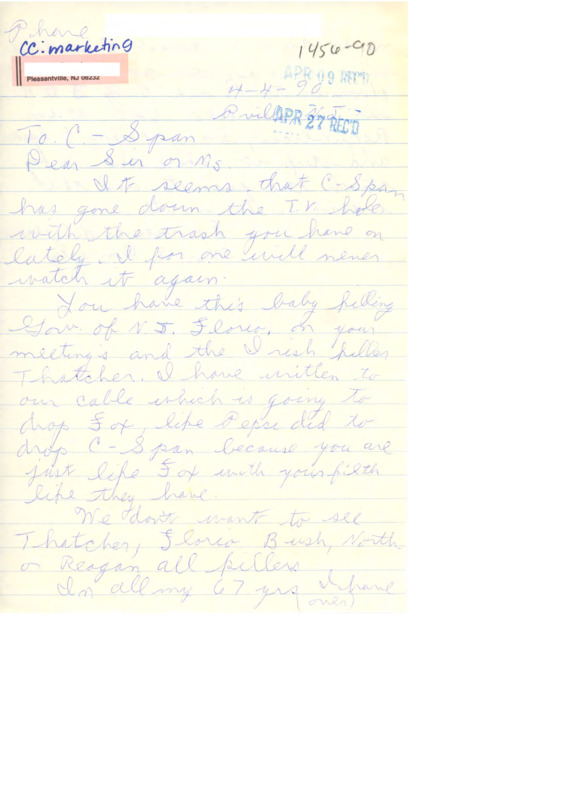 Phone
CC: marketing
1456-90
Pleasantville, NJ 08232
APR 09 REC'D
4-4-90
Pville N.J.
APR 27 REC'D
To C.-Span
Dear Sir or Ms.
It seems that C-Span
has gone down the T.V. hole
with the trash you have on
lately. I for one will never
watch it again.
You have this baby killing
Gov. of N.J. Florio, on your
meeting's and the Irish killer
Thatcher. I have written to
our cable which is going to
drop Fox, like Pepsi did to
drop C-Span because you are
just like Fox with your filth
like they have.
We don't want to see
Thatcher, Florio Bush, North
or Reagan all killers
In all my 67 yrs I have
(over)